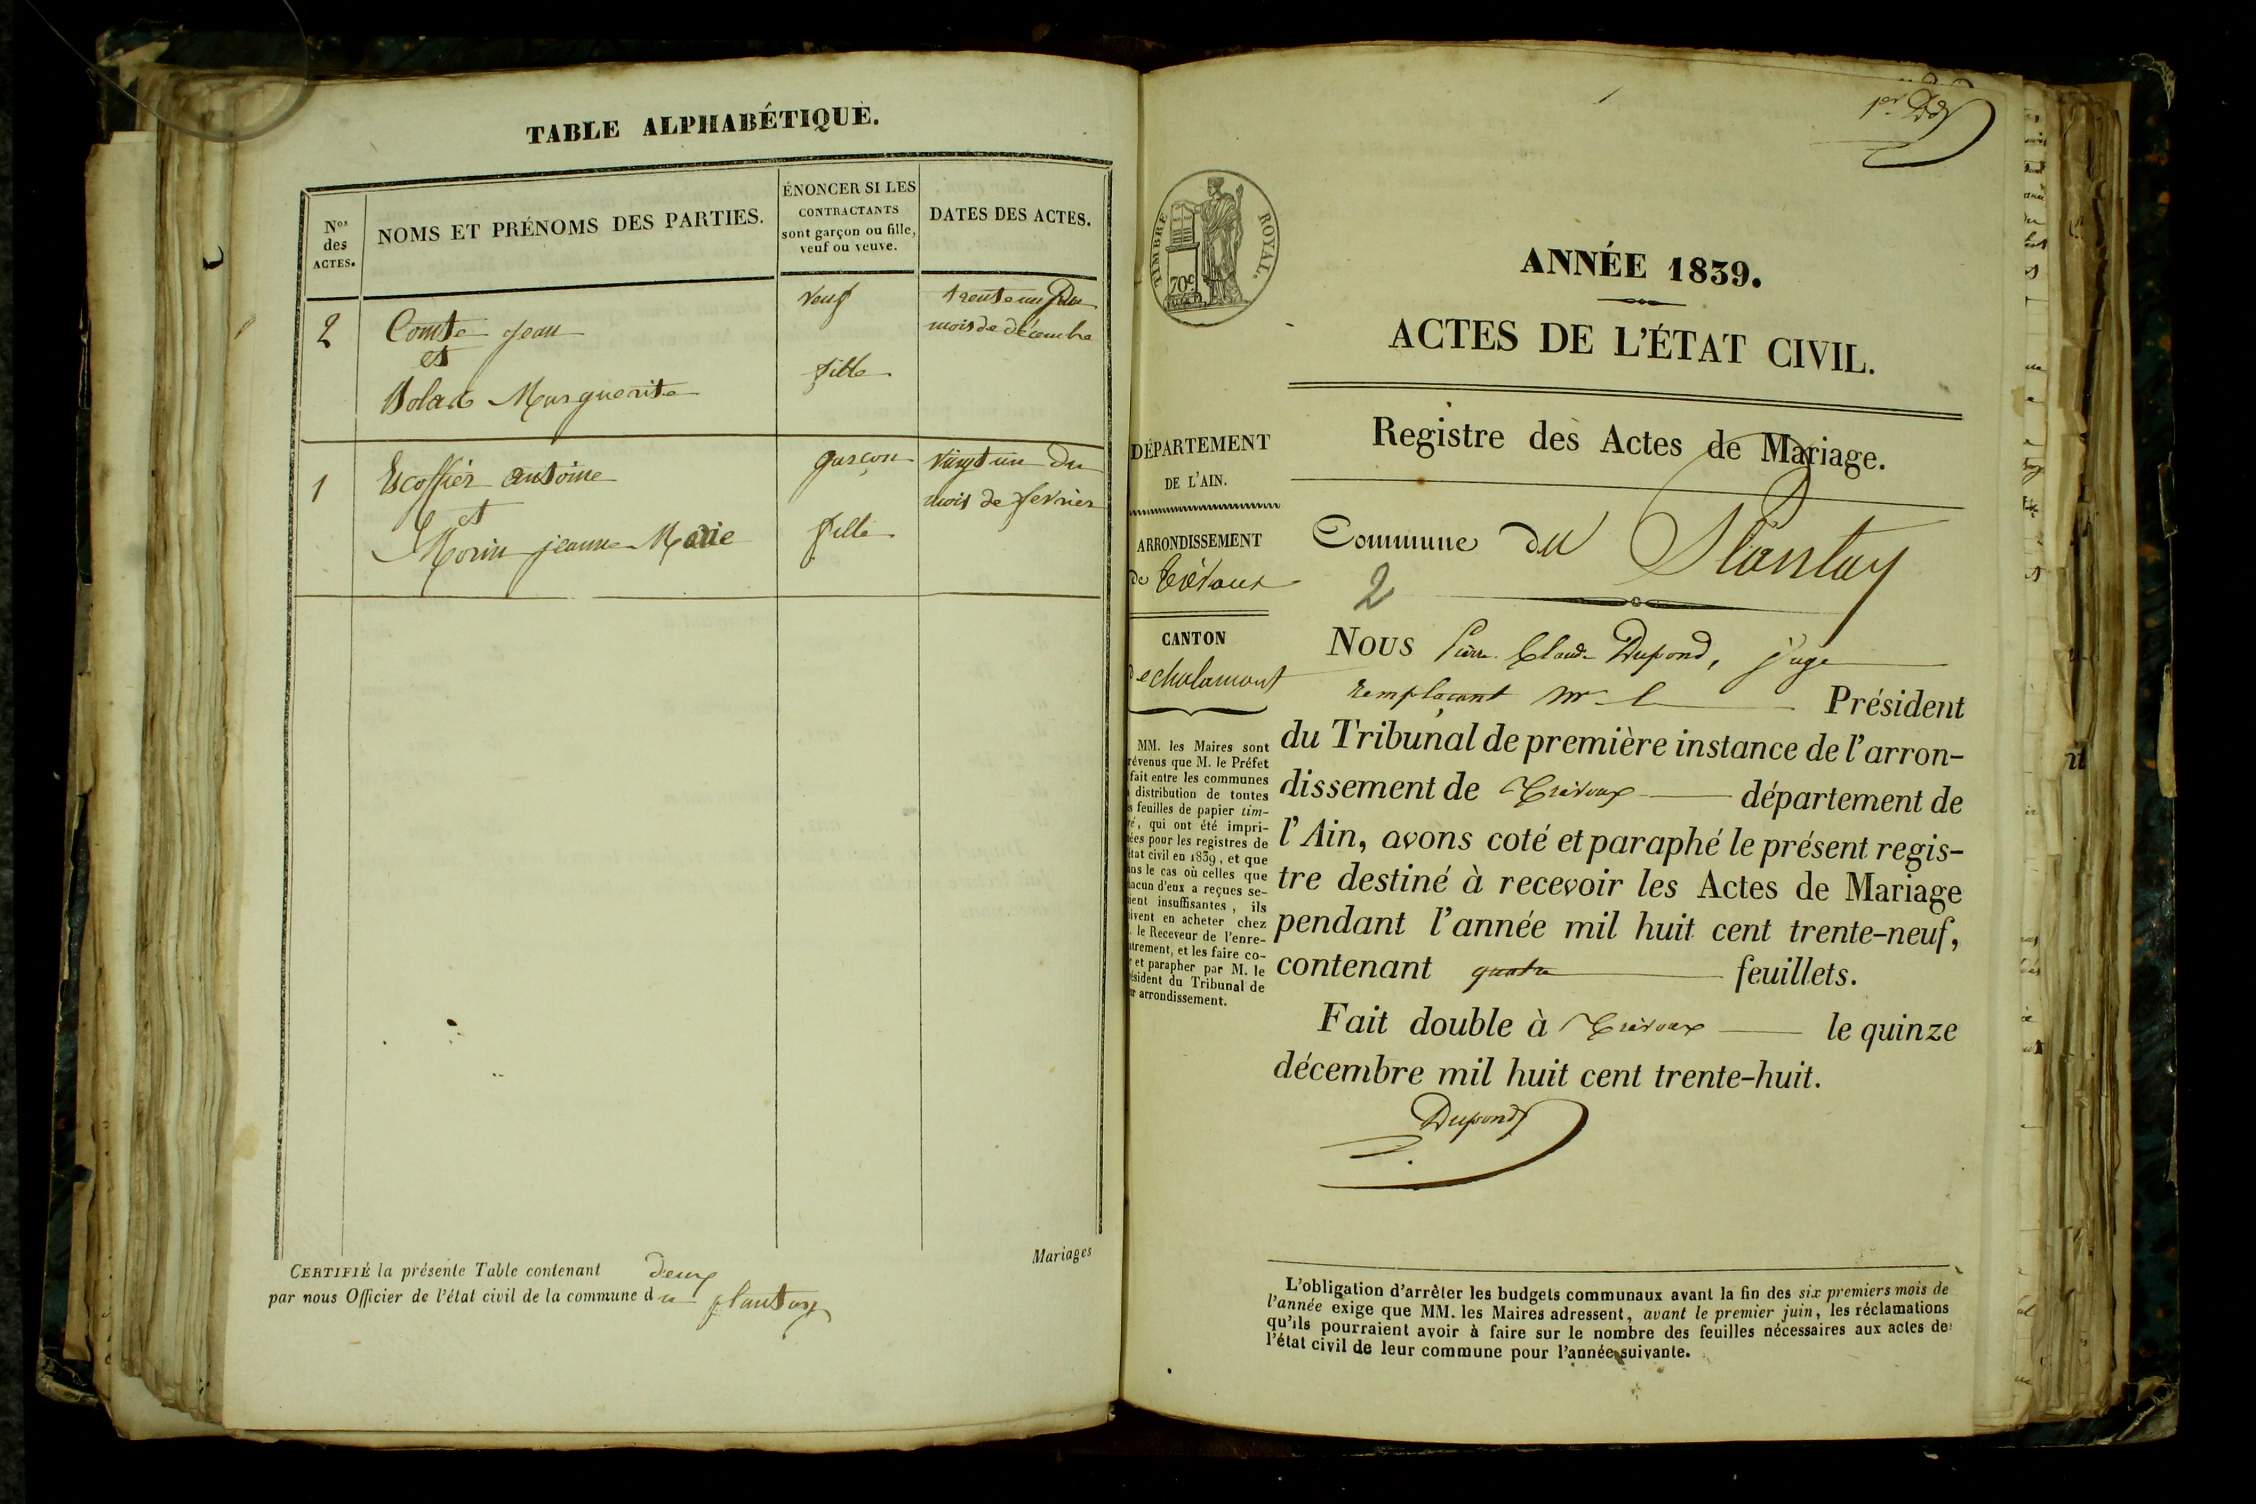 TABLE ALPHABÉTIQUE.
Nos des ACTES.
NOMS ET PRÉNOMS DES PARTIES.
ÉNONCER SI LES
CONTRACTANTS
sont garçon ou fille,
veuf ou veuve.
DATES DES ACTES.
2
Comte jean
et
Volad Marguerite
veuf
fille
trente un du
mois de décembre
1
Escoffier antoine
et
Morin jeanne Marie
garçon
fille
vingt un du
mois de fevrier
CERTIFIÉ la présente Table contenant deux Mariages
par nous Officier de l'état civil de la commune du plantay
1er
TIMBRE ROYAL.
70c
ANNÉE 1839.
ACTES DE L'ÉTAT CIVIL.
DÉPARTEMENT
DE L'AIN.
ARRONDISSEMENT
de Trévoux
CANTON
de chalamont
MM. les Maires sont
révenus que M. le Préfet
fait entre les communes
distribution de toutes
s feuilles de papier tim-
ré, qui ont été impri-
ées pour les registres de
état civil en 1839, et que
ns le cas où celles que
acun d'eux a reçues se-
ient insuffisantes, ils
ivent en acheter chez
. le Receveur de l'enre-
trement, et les faire co-
r et parapher par M. le
ésident du Tribunal de
ur arrondissement.
Registre des Actes de Mariage.
Commune du Plantay
2
Nous Pierre Claude Dupond, juge
remplaçant Mr le Président
du Tribunal de première instance de l'arron-
dissement de Trévoux département de
l'Ain, avons coté et paraphé le présent regis-
tre destiné à recevoir les Actes de Mariage
pendant l'année mil huit cent trente-neuf,
contenant quatre feuillets.
Fait double à Trévoux le quinze
décembre mil huit cent trente-huit.
Dupond
L'obligation d'arrêter les budgets communaux avant la fin des six premiers mois de
l'année exige que MM. les Maires adressent, avant le premier juin, les réclamations
qu'ils pourraient avoir à faire sur le nombre des feuilles nécessaires aux actes de
l'état civil de leur commune pour l'année suivante.